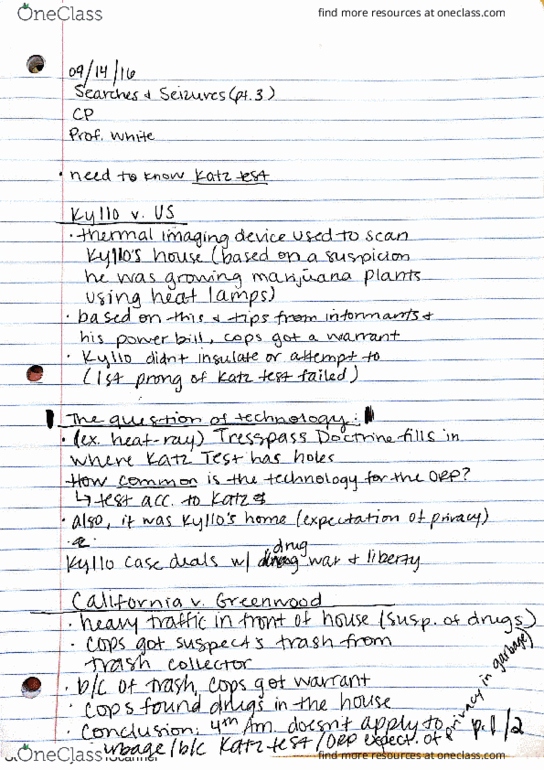 OneClass
find more resources at oneclass.com
09/14/16
Searches & Seizures (pt. 3)
CP
Prof. White
• need to know Katz test
Kyllo v. US
• thermal imaging device used to scan
Kyllo's house (based on a suspicion
he was growing marijuana plants
using heat lamps)
• based on this & tips from informants &
his power bill, cops got a warrant
• Kyllo didnt insulate or attempt to
(1st prong of Katz test failed)
The question of technology:
• (ex. heat-ray) Tresspass Doctrine fills in
where Katz Test has holes
How common is the technology for the ORP?
↳ test acc. to Katz
• also, it was Kyllo's home (expectation of privacy)
Kyllo case deals w/ drug war & liberty
California v. Greenwood
• heavy traffic in front of house (susp. of drugs)
• cops got suspect's trash from
trash collector
• b/c of trash, cops got warrant
• cops found drugs in the house
• Conclusion: 4th Am. doesn't apply to
garbage / b/c Katz test / ORP expect. of privacy in garbage)
p. 1/2
OneClass
find more resources at oneclass.com